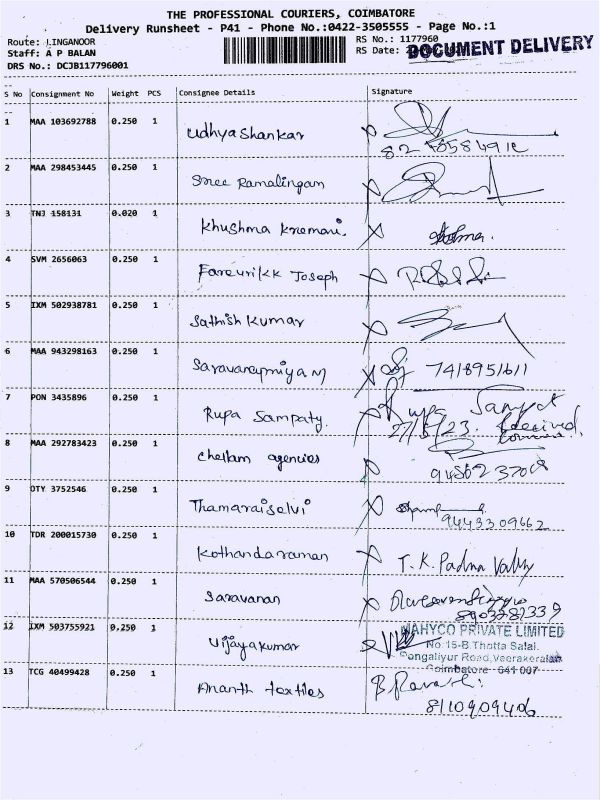 THE PROFESSIONAL COURIERS, COIMBATORE
Delivery Runsheet - P41 - Phone No.:0422-3505555 - Page No.:1
Route: LINGANOOR
RS No.: 1177960
Staff: A P BALAN
RS Date:
DOCUMENT DELIVERY
DRS No.: DCJB117796001
S No Consignment No Weight PCS Consignee Details Signature
1 MAA 103692788 0.250 1 Udhyashankar
2 MAA 298453445 0.250 1 Sree Ramalingam
3 TNJ 158131 0.020 1 Khushma
4 SVM 2656063 0.250 1 Joseph
5 IXM 502938781 0.250 1 Sathish Kumar
6 MAA 943298163 0.250 1 7418951611
7 PON 3435896 0.250 1 Rupa Sampaty. Rupa Sampat
27/5/23. Received
8 MAA 292783423 0.250 1 Chellam agencies
9 OTY 3752546 0.250 1 Thamaraiselvi
9443309662
10 TDR 200015730 0.250 1 Kothandaraman T.K. Padma
11 MAA 570506544 0.250 1 Saravanan
12 IXM 503755921 0.250 1 Vijayakumar
MAHYCO PRIVATE LIMITED
No.15-B.Thotta Salai.
Gongaliyur Road,Veerakeralam
Coimbatore 641 007
13 TCG 40499428 0.250 1 Ananth textiles
8110909406